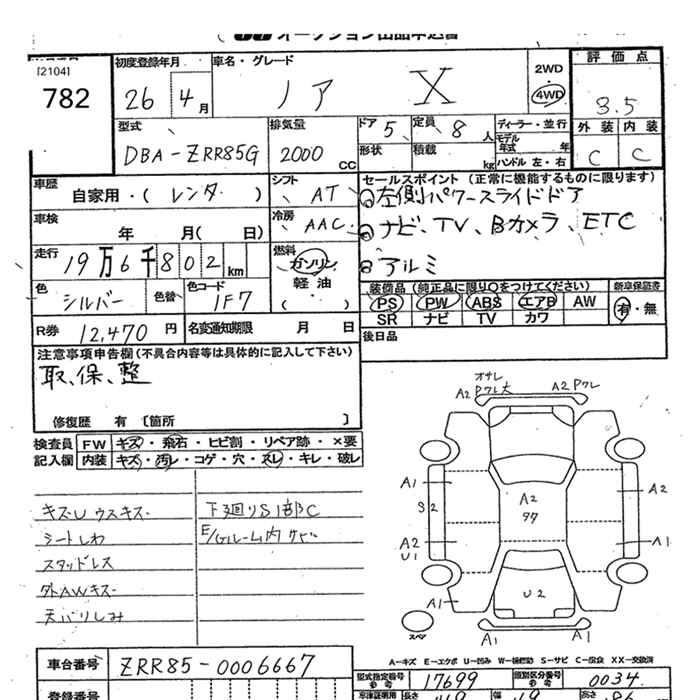 オークション出品申込書
[2104]
782
初度登録年月 26年 4月
車名・グレード ノア X
2WD
4WD
評価点
3.5
型式 DBA-ZRR85G
排気量 2000 CC
ドア 5 定員 8 人
形状 積載 kg
ディーラー・並行
モデル年式 年
ハンドル 左・右
外装 内装
C C
車歴 自家用・(レンタ)
シフト AT
車検 年 月( 日)
冷房 AAC
走行 19万6千802km
燃料 ガソリン
軽油
( )
色 シルバー 色替 色コード 1F7
R券 12,470円 名変通知期限 月 日
セールスポイント (正常に機能するものに限ります)
左側パワースライドドア
ナビ、TV、Bカメラ、ETC
アルミ
装備品 (純正品に限り○をつけてください) 新車保証書
PS PW ABS エアB AW 有・無
SR ナビ TV カワ
後日品
注意事項申告欄(不具合内容等は具体的に記入して下さい)
取、保、整
修復歴 有 〔箇所 〕
検査員 FW キズ・飛石・ヒビ割・リペア跡・×要
記入欄 内装 キズ・汚レ・コゲ・穴・スレ・キレ・破レ
キズU ウスキズ 下廻りS1部C
シートしわ E/Gルーム内サビ
スタッドレス
外AWキズ
天バリしみ
オサレ
A2 Pワレ大 A2 Pワレ
A1 A2
S2 A2
A2 A1
U1
A1 U2
スペア A1 A1
A-キズ E-エクボ U-凹み W-補修跡 S-サビ C-腐食 XX-交換済
車台番号 ZRR85-0006667
型式指定番号 17699 類別区分番号 0034
登録番号